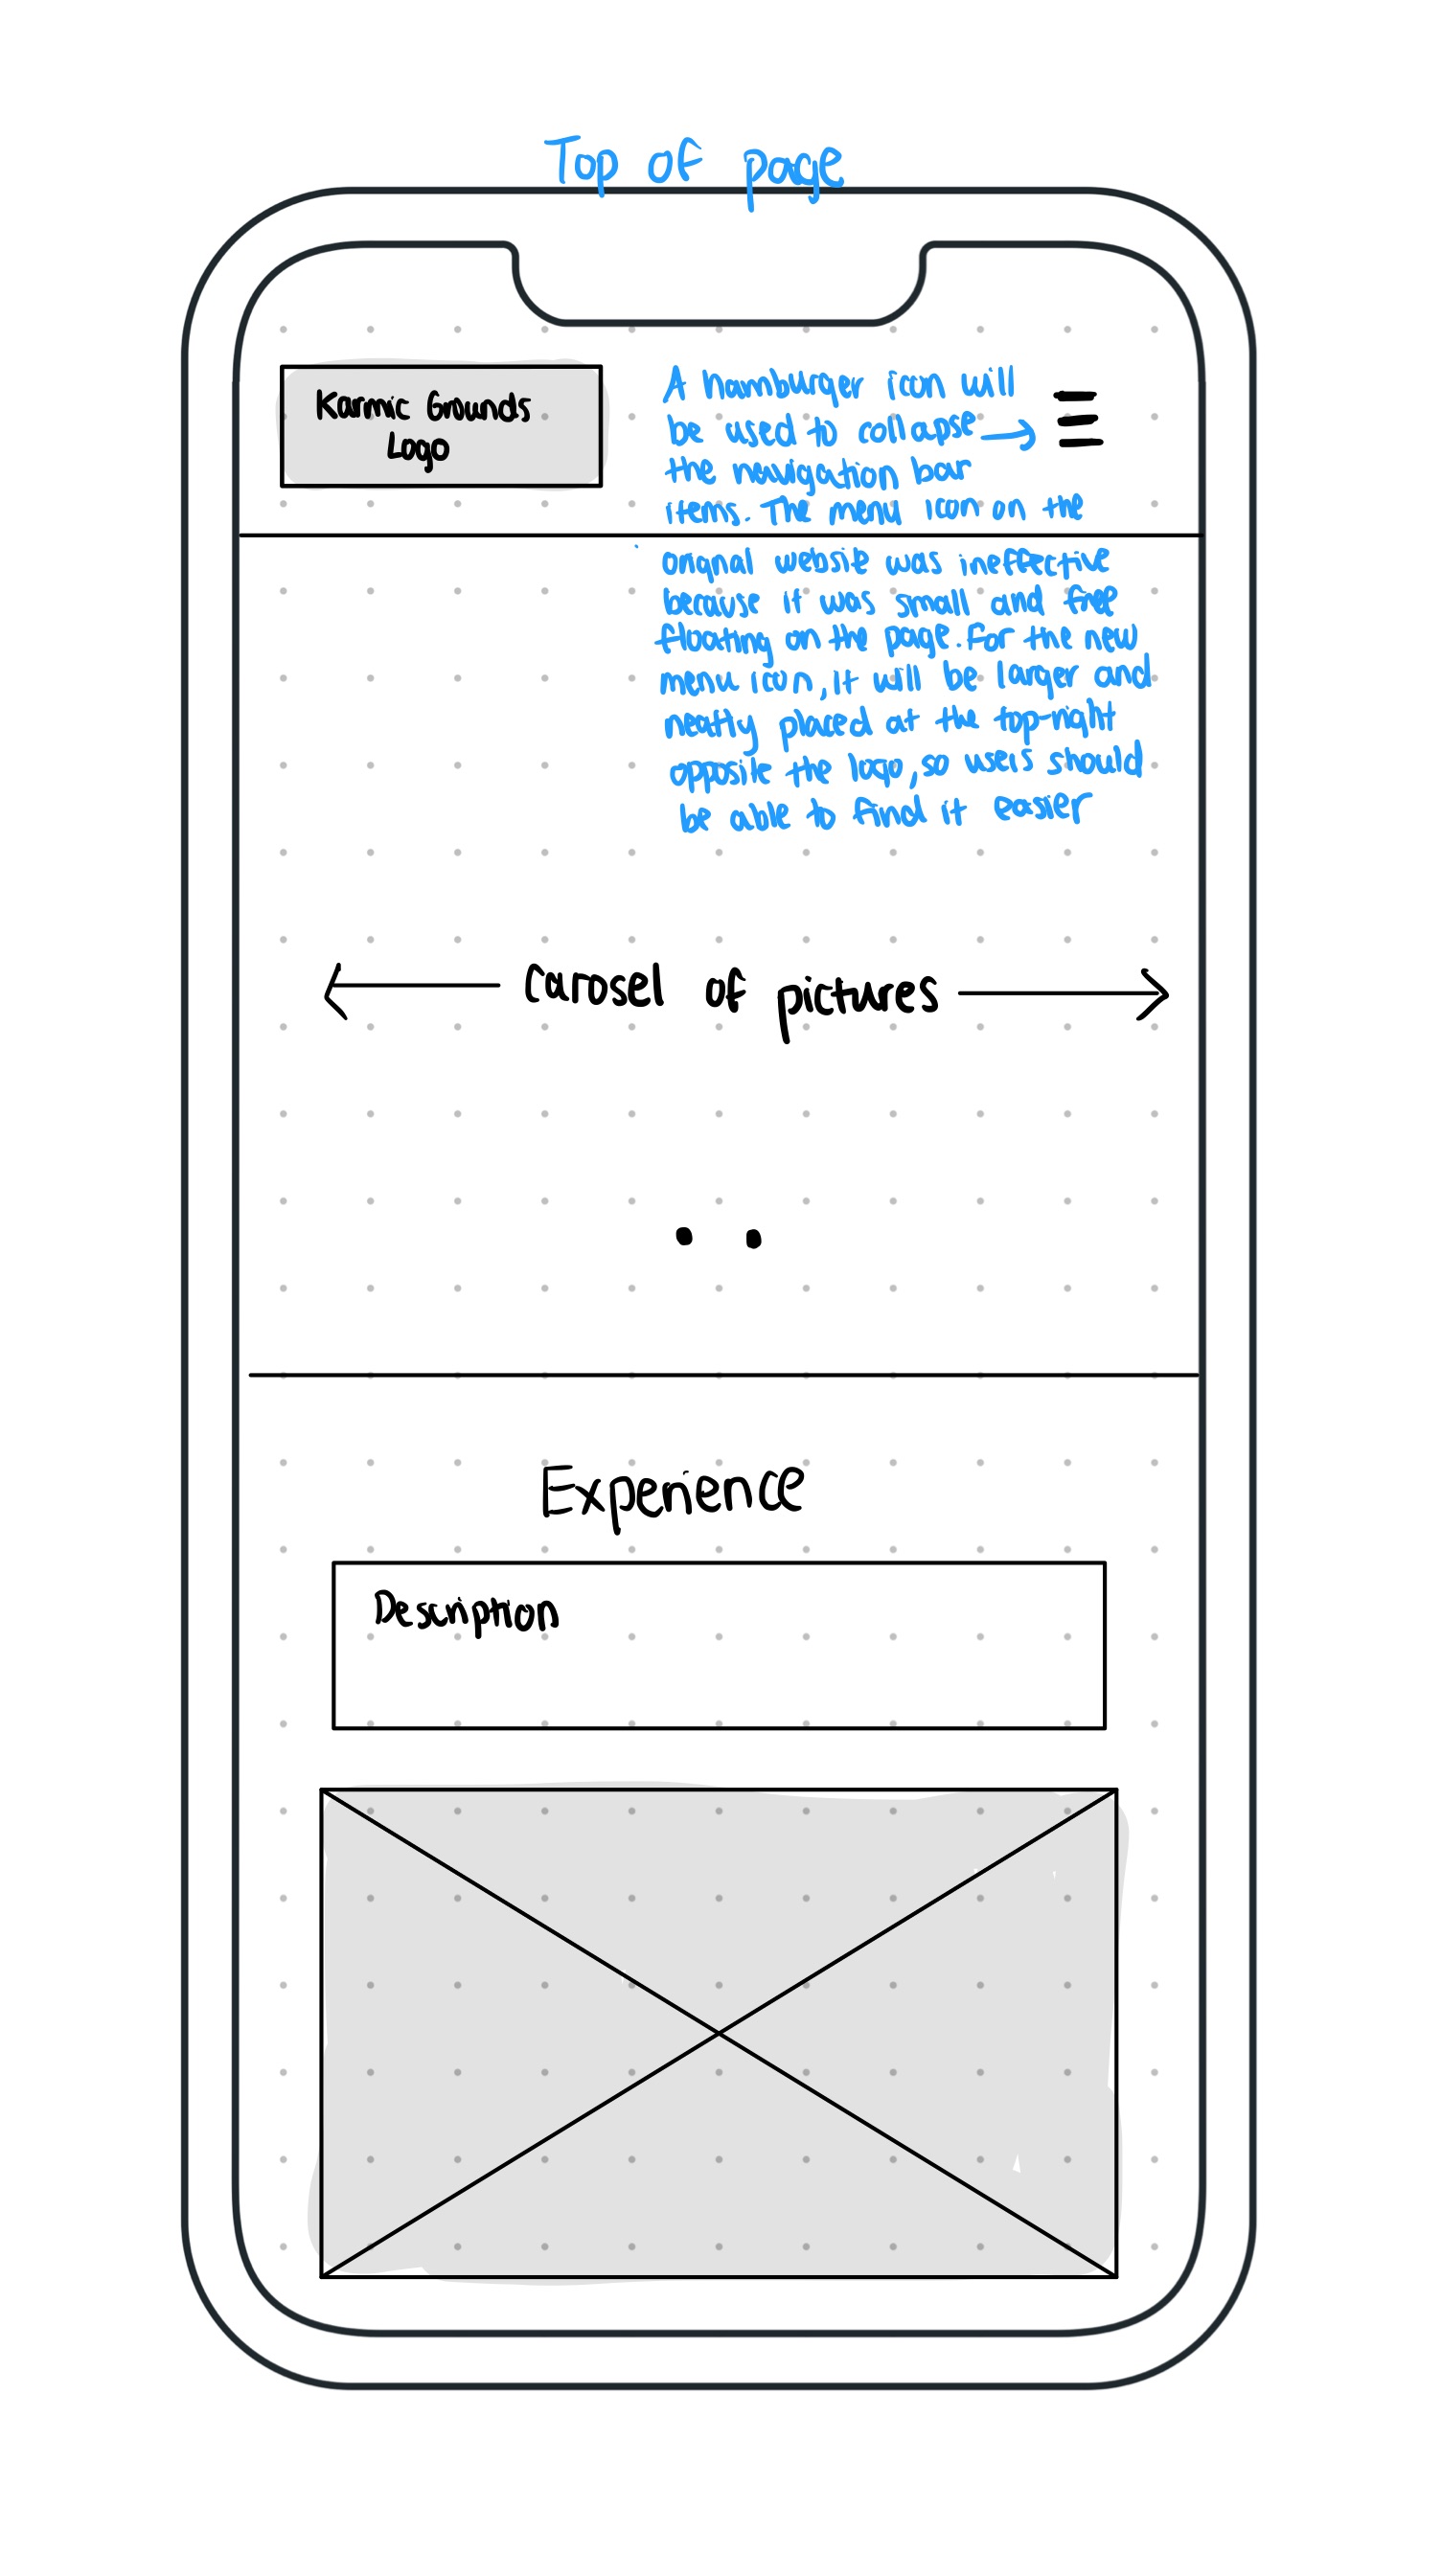 Top of page
Karmic Grounds
Logo
A hamburger icon will
be used to collapse
the navigation bar
items. The menu icon on the
orignal website was ineffective
because it was small and free
floating on the page. For the new
menu icon, it will be larger and
neatly placed at the top-right
opposite the logo, so users should
be able to find it easier
carosel of pictures
Experience
Description